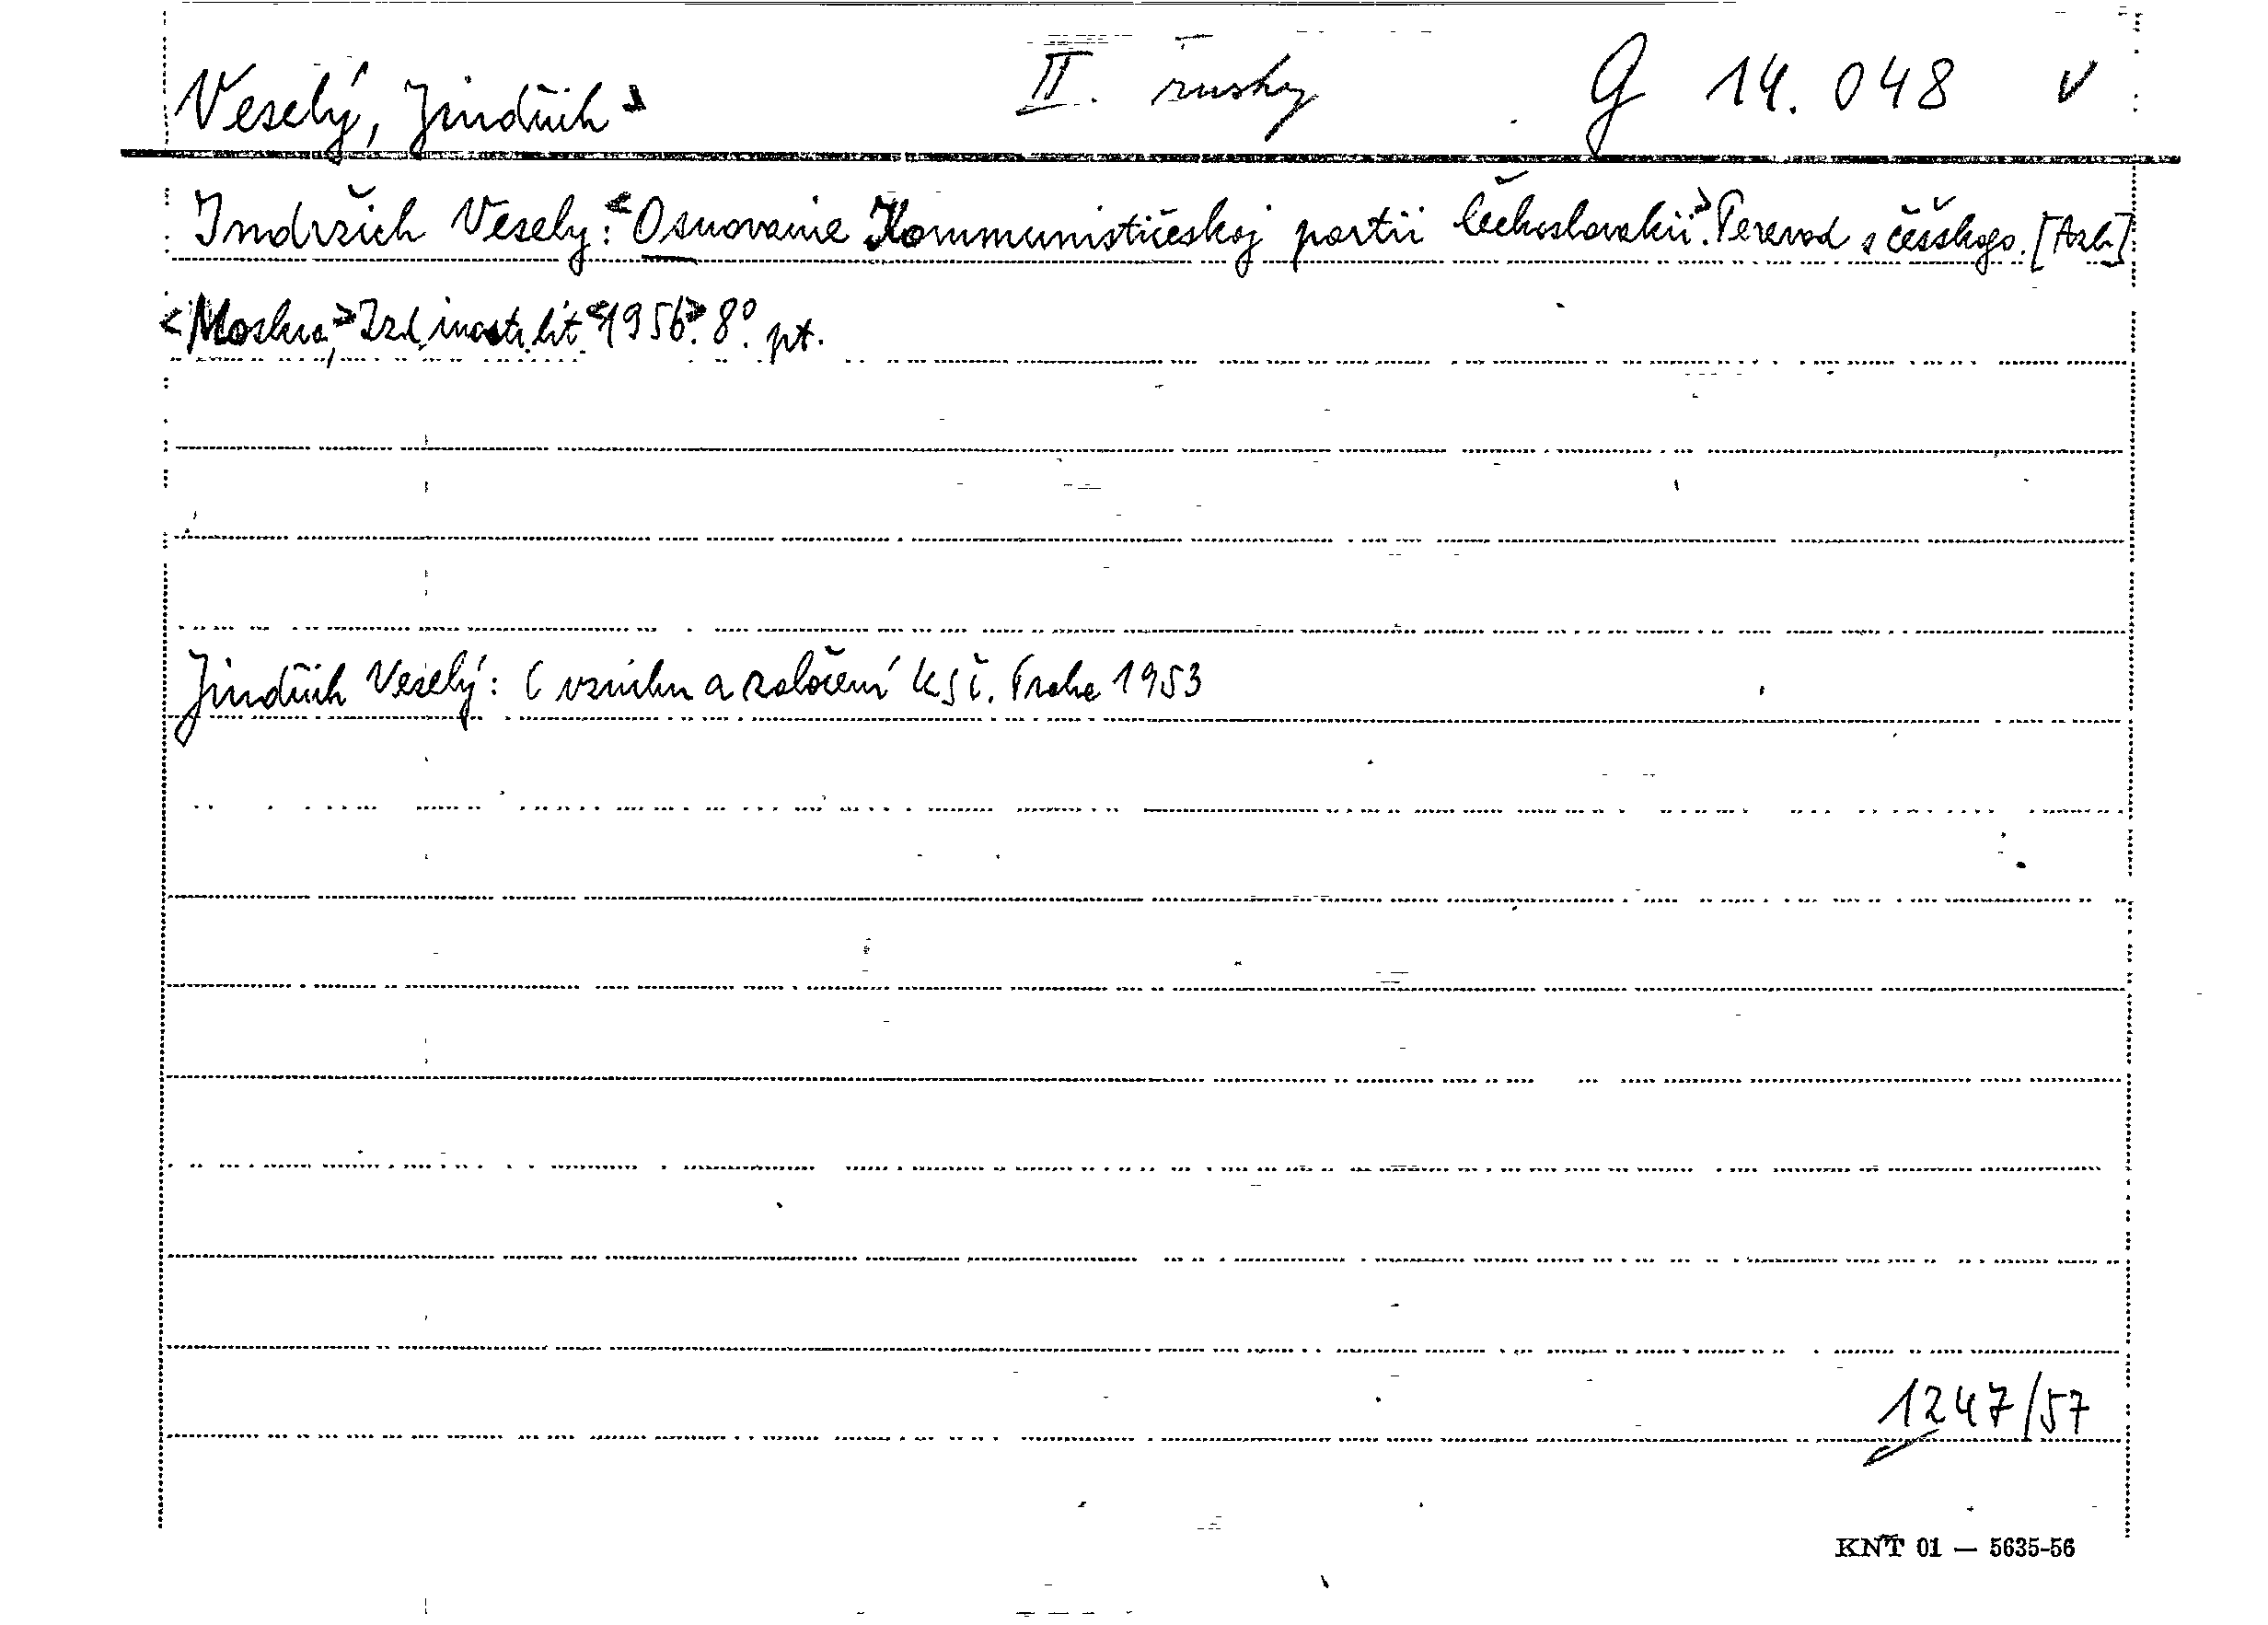 Veselý, Jindřich II. rusky G 14.048 v
Indržich Vesely: <Osnovanie Kommunističeskoj partii Čechoslovakii>. Perevod s češskogo. [Azb.]
<Moskva,> Izd. inostr. lit. <1956>. 8°. pt.
Jindřich Veselý: O vzniku a založení KSČ. Praha 1953
1247/57
KNT 01 — 5635-56